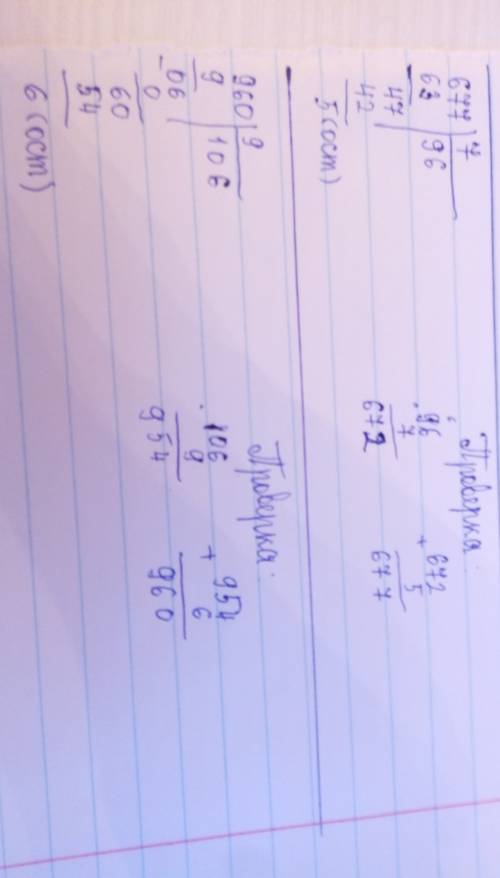 677 7
63 96
47
42
5 (ост)
Проверка:
96
7
672
+ 672
5
677
960 9
9 106
- 06
0
60
54
6 (ост)
Проверка:
· 106
9
954
+ 954
6
960